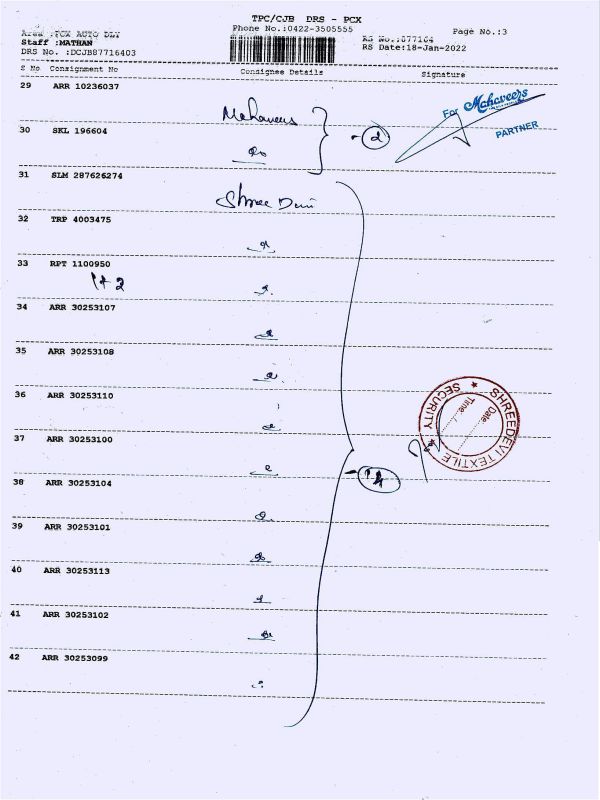 TPC/CJB DRS - PCX
Phone No.:0422-3505555
Area :PCX AUTO DLY
Staff :MATHAN
DRS No. :DCJB87716403
RS No.:077164
RS Date:18-Jan-2022
Page No.:3
S No Consignment No Consignee Details Signature
29 ARR 10236037
Mahaveers
For Mahaveers
PARTNER
30 SKL 196604
2
31 SLM 287626274
Shree Devi
32 TRP 4003475
33 RPT 1100950
1+2
34 ARR 30253107
35 ARR 30253108
36 ARR 30253110
37 ARR 30253100
SHREEDEVI TEXTILE
SECURITY
Date
Time
38 ARR 30253104
39 ARR 30253101
40 ARR 30253113
41 ARR 30253102
42 ARR 30253099